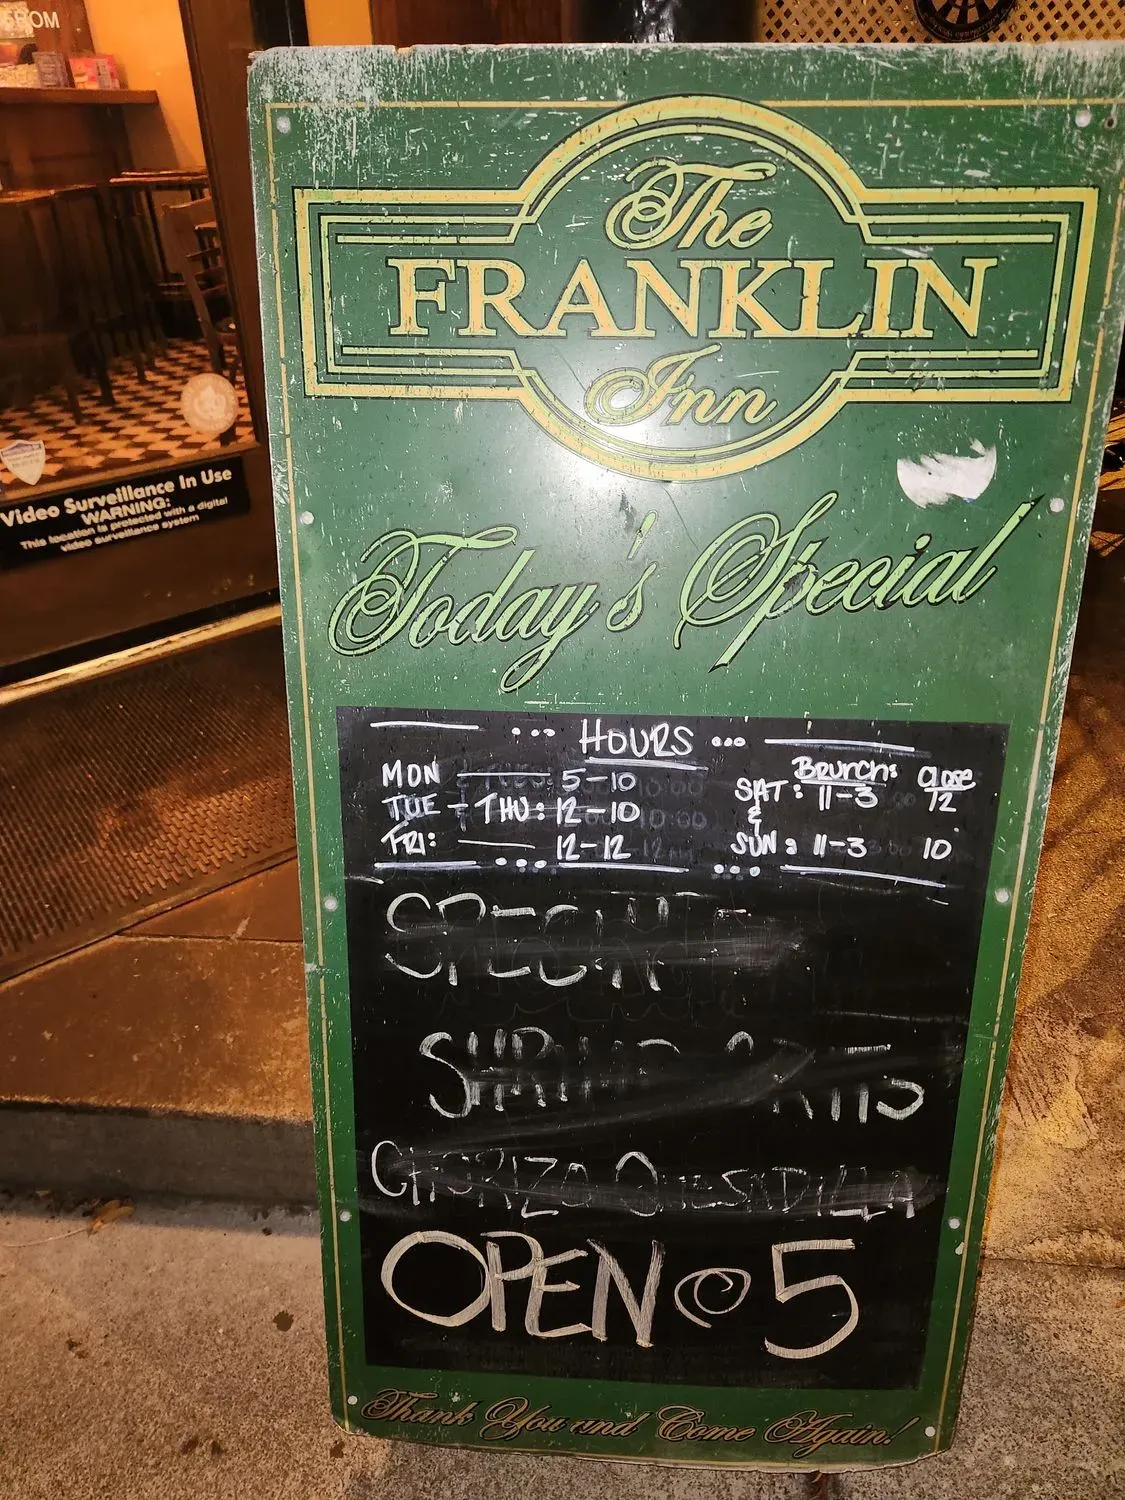 The
FRANKLIN
Inn
Today's Special
... HOURS ...
MON — 5-10
TUE - THU: 12-10
FRI: — 12-12
Brunch: close
SAT: 11-3 12
&
SUN: 11-3 10
SPECIAL
SHRIMP
CHORIZO QUESADILLA
OPEN @ 5
Thank You and Come Again!
Video Surveillance In Use
WARNING:
This location is protected with a digital
video surveillance system